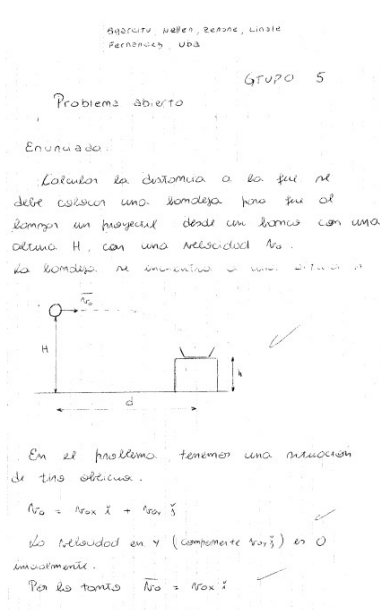 Nellen, Zenone, Linale
Fernandez, UBA
GTUPO 5
Problema abierto
Enunciado.
Calcular la distancia a la que se
debe colocar una bandeja para que al
lanzar un proyectil desde un banco con una
altura H, con una velocidad v₀.
La bandeja se encuentra a una altura
v₀
H
h
d
En el problema tenemos una situación
de tiro oblicuo.
v₀ = v₀x i + v₀y j
La velocidad en y (componente v₀y j) es 0
inicialmente.
Por lo tanto v₀ = v₀x i